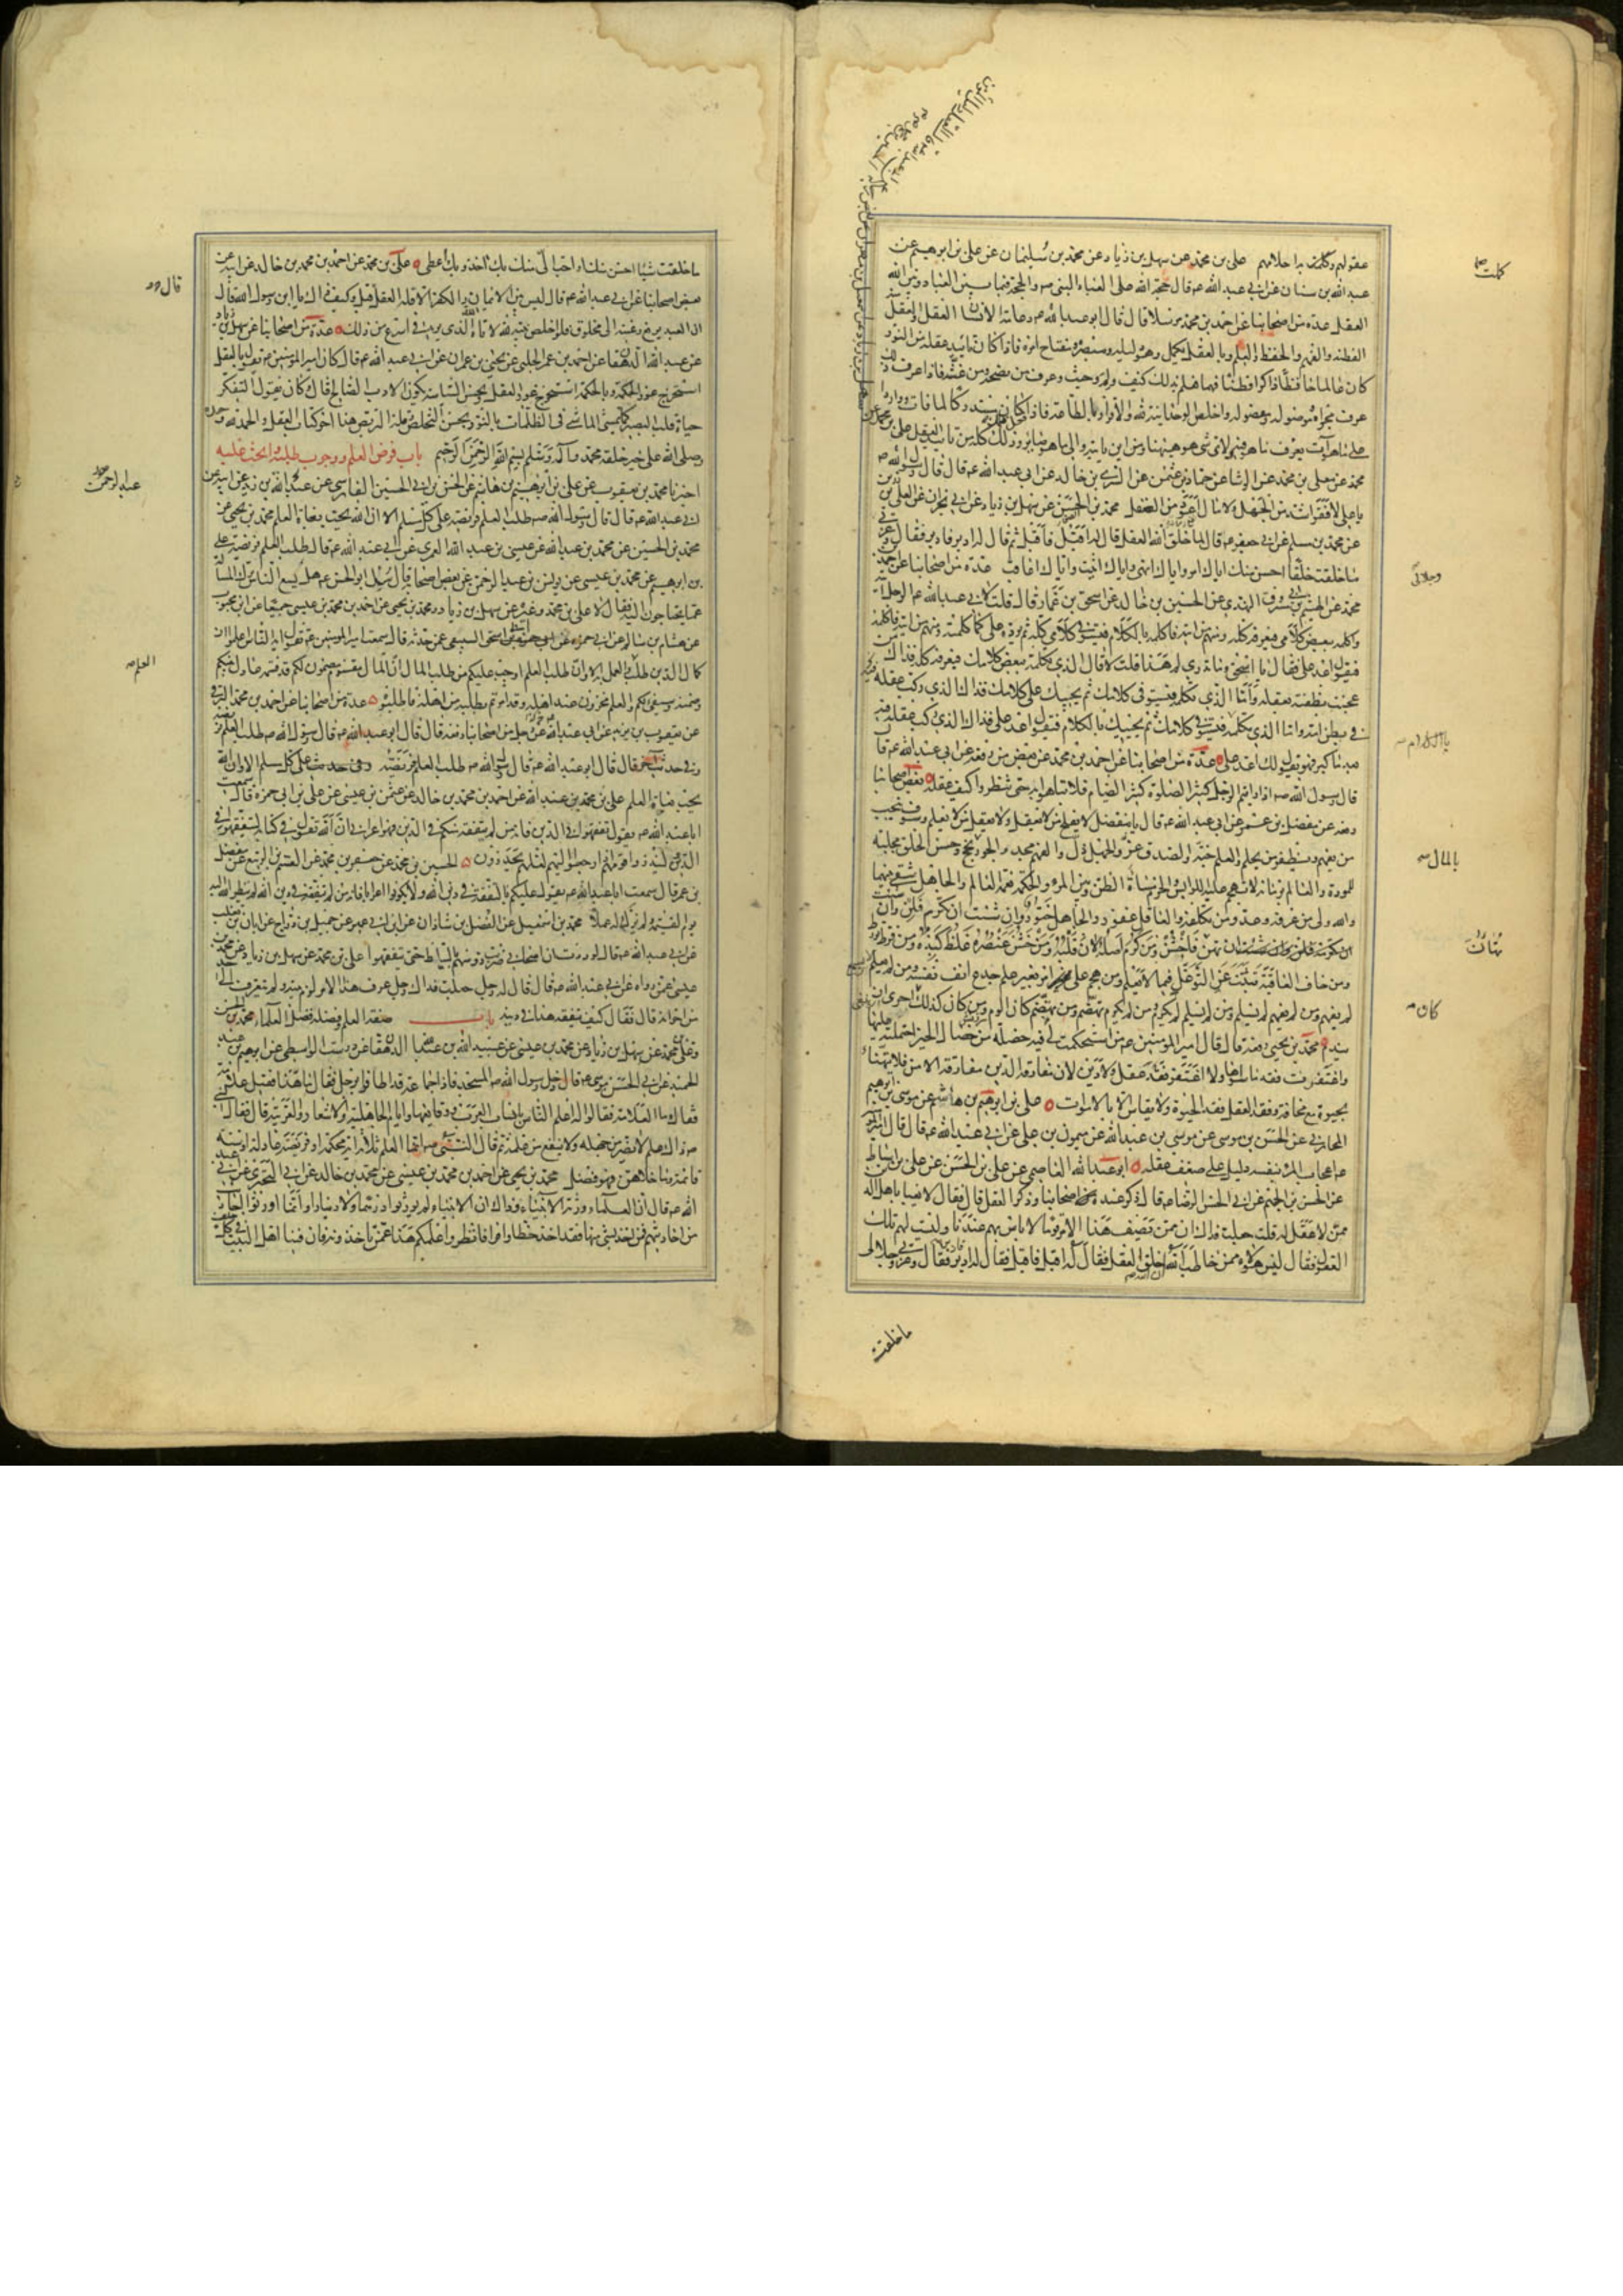 عقولهم وكملت به احلامهم علي بن محمد عن سهل بن زياد عن محمد بن سليمان عن علي بن ابرهيم عن
عبد الله بن سنان عن ابي عبد الله عم قال حجة الله على العباد النبي ص والحجة فيما بين العباد وبين الله
العقل عدة من اصحابنا عن احمد بن محمد مرسلا قال قال ابو عبد الله عم دعامة الانسان العقل والعقل منه
الفطنة والفهم والحفظ والعلم وبالعقل يكمل وهو دليله ومبصره ومفتاح امره فاذا كان تاييد عقله من النور
كان عالما حافظا ذاكرا فطنا فهما فعلم بذلك كيف ولم وحيث وعرف من نصحه ومن غشه فاذا عرف ذلك
عرف مجراه وموصوله ومفصوله واخلص الوحدانية لله والاقرار بالطاعة فاذا كان مستدركا لما فات وواردا
على ما هو آت يعرف ما هو فيه ولاي شي هو هيهنا ومن اين ياتيه والى ما هو صاير وذلك كله من تاييد العقل علي بن
يا علي لا فقر اشد من الجهل ولا مال اعود من العقل محمد بن الحسن عن سهل بن زياد عن ابن ابي نجران عن العلا بن رزين
عن محمد بن مسلم عن ابي جعفر عم قال لما خلق الله العقل قال له اقبل فاقبل ثم قال له ادبر فادبر فقال وعزتي
ما خلقت خلقا احسن منك اياك امر واياك انهى واياك اثيب واياك اعاقب عدة من اصحابنا عن احمد بن
محمد عن الهيثم بن ابي مسروق النهدي عن الحسين بن خالد عن اسحق بن عمار قال قلت لابي عبد الله عم الرجل آتيه
واكلمه ببعض كلامي فيعرفه كله ومنهم من آتيه فاكلمه بالكلام فيستوفي كلامي كله ثم يرده علي كما كلمته ومنهم من آتيه فاكلمه
فيقول اعد علي فقال يا اسحق وما تدري لم هذا قلت لا قال الذي تكلمه ببعض كلامك فيعرفه كله فذاك من
عجنت نطفته بعقله واما الذي تكلمه فيستوفي كلامك ثم يجيبك على كلامك فذاك الذي ركب عقله
في بطن امه واما الذي تكلمه فيستوفي كلامك ثم يجيبك بالكلام فيقول اعد علي فذاك الذي ركب عقله فيه
بعد ما كبر فهو يقول لك اعد علي عدة من اصحابنا عن احمد بن محمد عن بعض من رفعه عن ابي عبد الله عم قال
قال رسول الله ص اذا رايتم الرجل كثير الصلوة كثير الصيام فلا تباهوا به حتى تنظروا كيف عقله بعض اصحابنا
رفعه عن مفضل بن عمر عن ابي عبد الله عم قال يا مفضل لا يفلح من لا يعقل ولا يعقل من لا يعلم وسوف ينجب
من يفهم ويظفر من يحلم والعلم جنة والصدق عز والجهل ذل والفهم مجد والجود نجح وحسن الخلق مجلبة
للمودة والعالم بزمانه لا تهجم عليه اللوابس والحزم مساءة الظن وبين المرء والحكمة نعمة العالم والجاهل شقي بينهما
والله ولي من عرفه وعدو من تكلفه والعاقل غفور والجاهل ختور وان شئت ان تكرم فلن وان شئت
ان تهان فاخشن ومن كرم اصله لان قلبه ومن خشن عنصره غلظ كبده ومن فرط تورط
ومن خاف العاقبة تثبت عن التوغل فيما لا يعلم ومن هجم على امر بغير علم جدع انف نفسه ومن لم يعلم
لم يفهم ومن لم يفهم لم يسلم ومن لم يسلم لم يكرم ومن لم يكرم يهضم ومن يهضم كان الوم ومن كان كذلك احرى ان
يندم محمد بن يحيى رفعه قال قال امير المومنين عم من استحكمت لي فيه خصلة من خصال الخير احتملته عليها
واغتفرت فقد ما سواها ولا اغتفر فقد عقل ولا دين لان مفارقة الدين مفارقة الامن فلا يتهنأ
بحيوة مع مخافة وفقد العقل فقد الحيوة ولا يقاس الا بالاموات علي بن ابرهيم بن هاشم عن موسى بن ابرهيم
المحاربي عن الحسن بن موسى عن موسى بن عبد الله عن ميمون بن علي عن ابي عبد الله عم قال قال امير المومنين
عم اعجاب المرء بنفسه دليل على ضعف عقله ابو عبد الله العاصمي عن علي بن الحسن عن علي بن اسباط
عن الحسن بن الجهم عن ابي الحسن الرضا عم قال ذكر عنده اصحابنا وذكر العقل قال فقال لا يعبا باهل الدين
ممن لا عقل له قلت جعلت فداك ان ممن نصف هذا الامر قوما لا باس بهم عندنا وليست لهم تلك
العقول فقال ليس هؤلاء ممن خاطب الله ان الله خلق العقل فقال له اقبل فاقبل فقال له ادبر فادبر فقال وعزتي وجلالي
ما خلقت
كملت
وجلالي
بالمال
تهان
كان
ما خلقت شيئا احسن منك او احب الي منك بك آخذ وبك اعطي علي بن محمد عن احمد بن محمد بن خالد عن ابيه عن
بعض اصحابنا عن ابي عبد الله عم قال ليس بين الايمان والكفر الا قلة العقل قيل وكيف ذاك يا ابن رسول الله قال
ان العبد يرفع رغبته الى مخلوق فلو اخلص نيته لله لاتاه الذي يريد في اسرع من ذلك عدة من اصحابنا عن سهل بن زياد
عن عبيد الله الدهقان عن احمد بن عمر الحلبي عن يحيى بن عمران عن ابي عبد الله عم قال كان امير المومنين عم يقول بالعقل
استخرج غور الحكمة وبالحكمة استخرج غور العقل وبحسن السياسة يكون الادب الصالح قال وكان يقول التفكر
حياة قلب البصير كما يمشي الماشي في الظلمات بالنور بحسن التخلص وقلة التربص هذا آخر كتاب العقل والحمد لله وحده
وصلى الله على خير خلقه محمد وآله وسلم بسم الله الرحمن الرحيم باب فرض العلم ووجوب طلبه والحث عليه
اخبرنا محمد بن يعقوب عن علي بن ابرهيم بن هاشم عن الحسن بن ابي الحسين الفارسي عن عبد الله بن زيد عن ابيه عن
ابي عبد الله عم قال قال رسول الله ص طلب العلم فريضة على كل مسلم الا ان الله يحب بغاة العلم محمد بن يحيى عن
محمد بن الحسين عن محمد بن عبد الله عن عيسى بن عبد الله العمري عن ابي عبد الله عم قال طلب العلم فريضة علي
بن ابرهيم عن محمد بن عيسى عن يونس بن عبد الرحمن عن بعض اصحابه قال سئل ابو الحسن عم هل يسع الناس ترك المسالة
عما يحتاجون اليه فقال لا علي بن محمد وغيره عن سهل بن زياد ومحمد بن يحيى عن احمد بن محمد بن عيسى جميعا عن ابن محبوب
عن هشام بن سالم عن ابي حمزة عن ابي اسحق السبيعي عمن حدثه قال سمعت امير المومنين عم يقول ايها الناس اعلموا ان
كمال الدين طلب العلم والعمل به الا وان طلب العلم اوجب عليكم من طلب المال ان المال مقسوم مضمون لكم قد قسمه عادل بينكم
وضمنه وسيفي لكم والعلم مخزون عند اهله وقد امرتم بطلبه من اهله فاطلبوه عدة من اصحابنا عن احمد بن محمد البرقي
عن يعقوب بن يزيد عن ابي عبد الله رجل من اصحابنا رفعه قال قال ابو عبد الله عم قال رسول الله ص طلب العلم فريضة
وفي حديث آخر قال قال ابو عبد الله عم قال رسول الله ص طلب العلم فريضة على كل مسلم الا وان الله
يحب بغاة العلم علي بن محمد بن عبد الله عن احمد بن محمد بن خالد عن عثمن بن عيسى عن علي بن ابي حمزة قال سمعت
ابا عبد الله عم يقول تفقهوا في الدين فانه من لم يتفقه منكم في الدين فهو اعرابي ان الله يقول في كتابه ليتفقهوا في
الدين ولينذروا قومهم اذا رجعوا اليهم لعلهم يحذرون الحسين بن محمد عن جعفر بن محمد عن القسم بن الربيع عن مفضل
بن عمر قال سمعت ابا عبد الله عم يقول عليكم بالتفقه في دين الله ولا تكونوا اعرابا فانه من لم يتفقه في دين الله لم ينظر الله اليه
يوم القيمة ولم يزك له عملا محمد بن اسمعيل عن الفضل بن شاذان عن ابن ابي عمير عن جميل بن دراج عن ابان بن تغلب
عن ابي عبد الله عم قال لوددت ان اصحابي ضربت رؤسهم بالسياط حتى يتفقهوا علي بن محمد عن سهل بن زياد عن محمد بن
عيسى عمن رواه عن ابي عبد الله عم قال قال له رجل جعلت فداك رجل عرف هذا الامر لزم بيته ولم يتعرف الى احد
من اخوانه قال فقال كيف يتفقه هذا في دينه باب صفة العلم وفضله وفضل العلماء محمد بن الحسن
وعلي بن محمد عن سهل بن زياد عن محمد بن عيسى عن عبيد الله بن عبد الله الدهقان عن درست الواسطي عن ابرهيم بن عبد
الحميد عن ابي الحسن موسى عم قال دخل رسول الله ص المسجد فاذا جماعة قد اطافوا برجل فقال ما هذا فقيل علامة
فقال وما العلامة فقالوا له اعلم الناس بانساب العرب ووقايعها وايام الجاهلية والاشعار والعربية قال فقال النبي
ص ذاك علم لا يضر من جهله ولا ينفع من علمه ثم قال النبي ص انما العلم ثلاثة آية محكمة او فريضة عادلة او سنة
قائمة وما خلاهن فهو فضل محمد بن يحيى عن احمد بن محمد بن عيسى عن محمد بن خالد عن ابي البختري عن ابي عبد
الله عم قال ان العلماء ورثة الانبياء وذاك ان الانبياء لم يورثوا درهما ولا دينارا وانما اورثوا احاديث
من احاديثهم فمن اخذ بشي منها فقد اخذ حظا وافرا فانظروا علمكم هذا عمن تاخذونه فان فينا اهل البيت في كل خلف
قال
عبد الرحمن
العلم